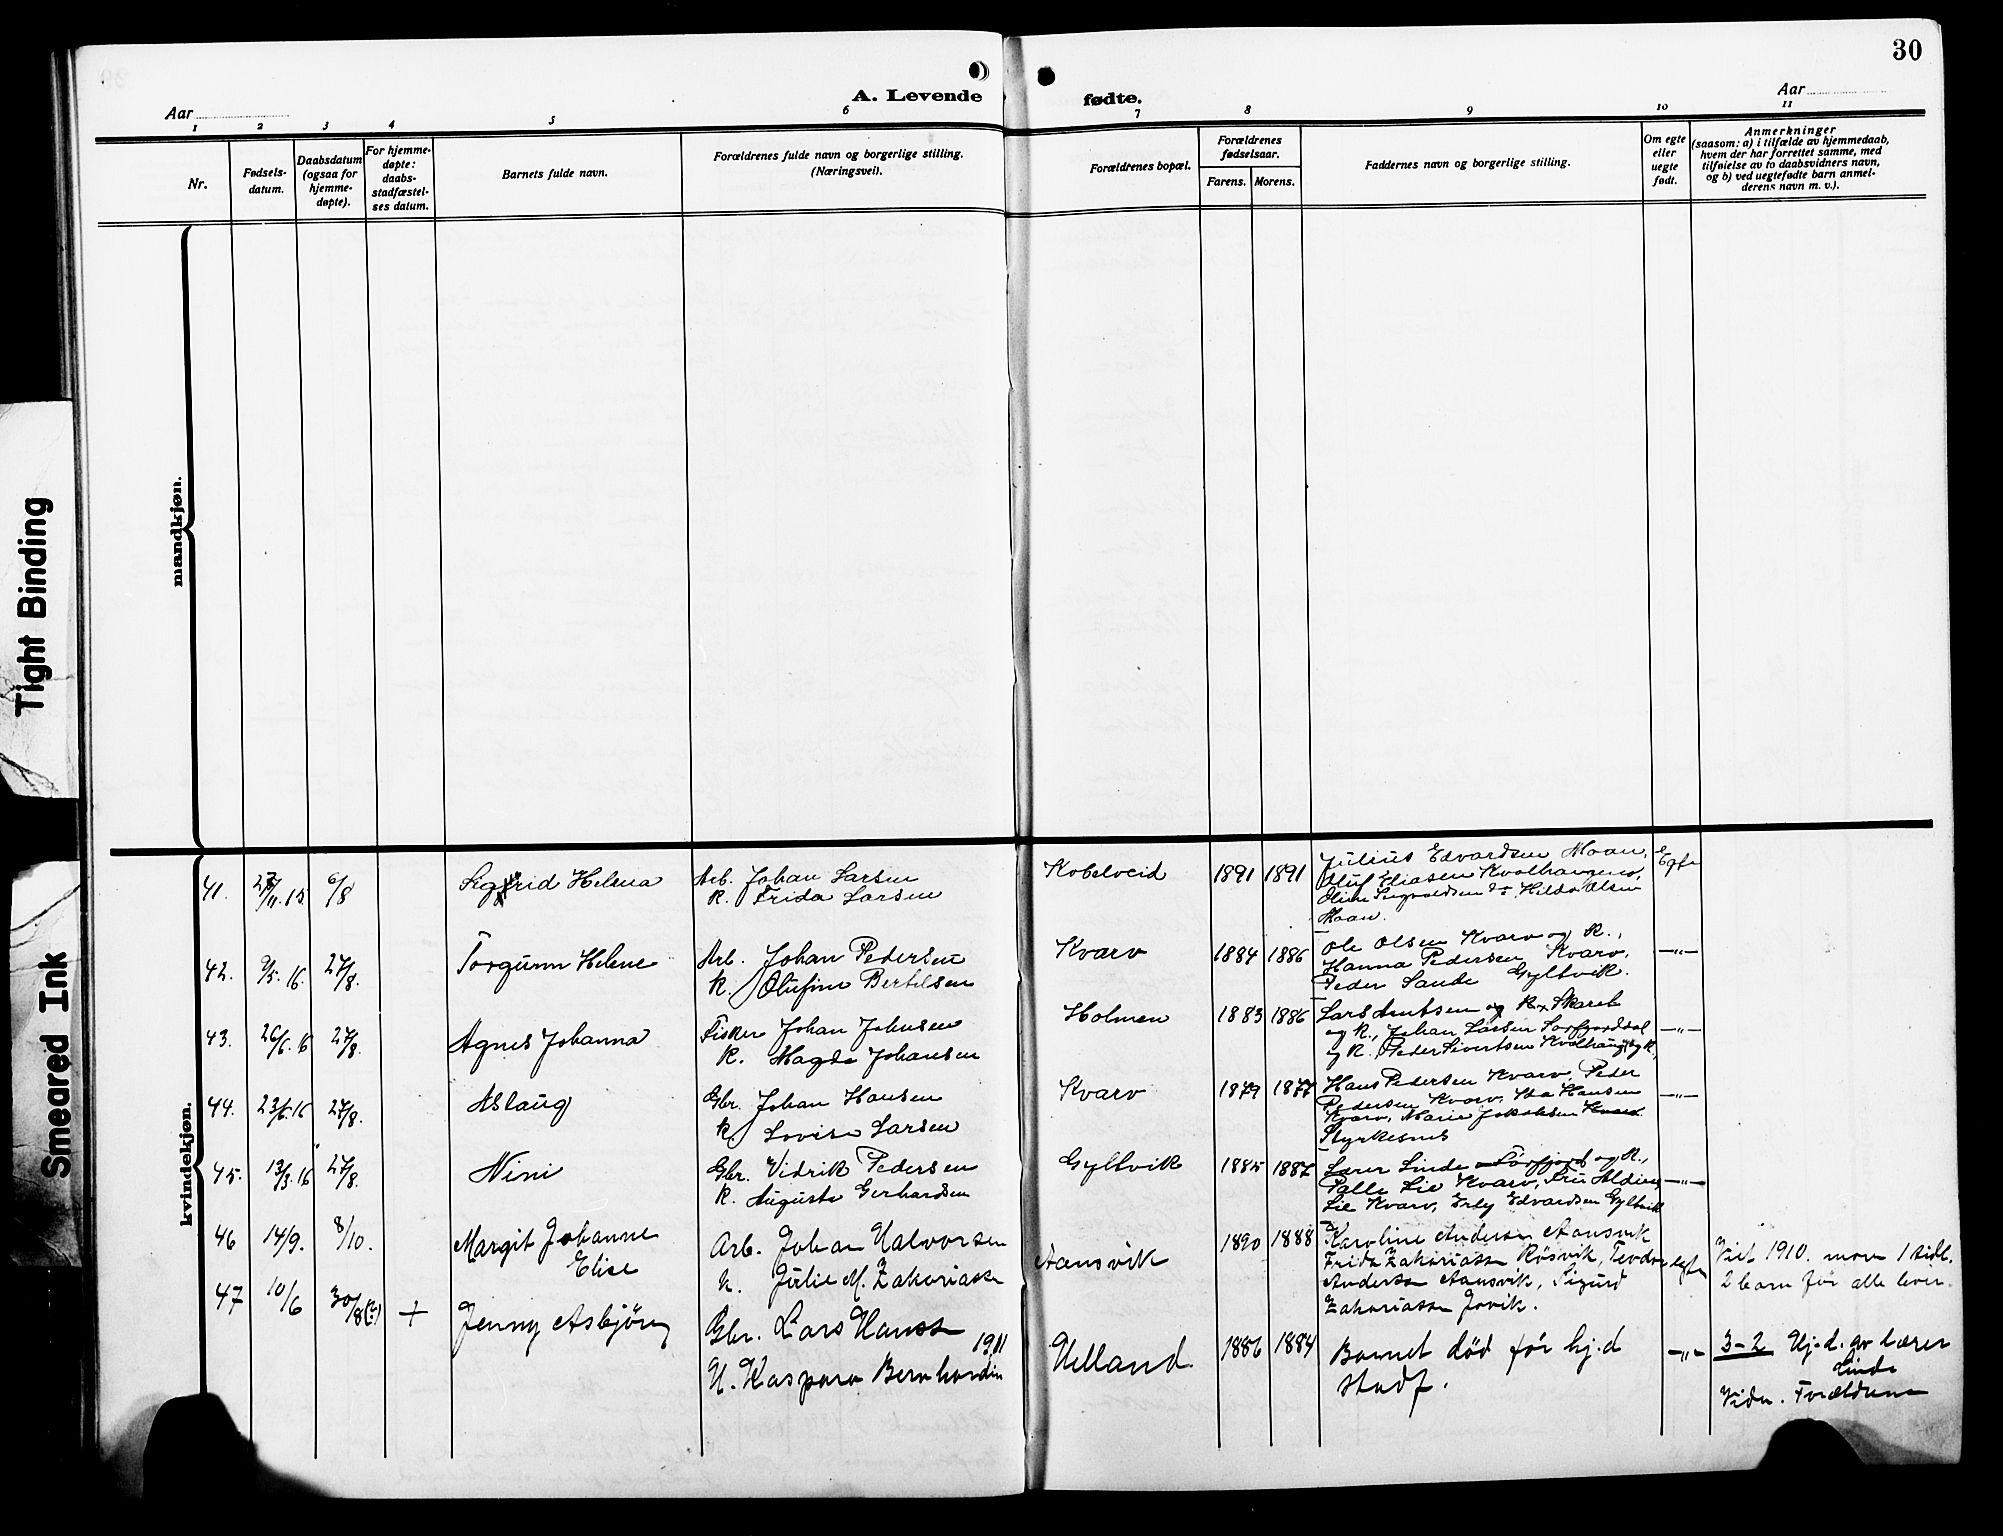 30
A. Levende fødte.
Aar
Aar
1 2 3 4 5 6 7 8 9 10 11
Nr.
Fødsels-
datum.
Daabsdatum
(ogsaa for
hjemme-
døpte).
For hjemme-
døpte:
daabs-
stadfæstel-
ses datum.
Barnets fulde navn.
Forældrenes fulde navn og borgerlige stilling.
(Næringsvei).
Forældrenes bopæl.
Forældrenes
fødselsaar.
Farens. Morens.
Faddernes navn og borgerlige stilling.
Om egte
eller
uegte
født.
Anmerkninger
(saasom: a) i tilfælde av hjemmedaab,
hvem der har forrettet samme, med
tilføielse av to daabsvidners navn,
og b) ved uegtefødte barn anmel-
derens navn m. v.).
mandkjøn.
kvindekjøn.
Tight Binding
Smeared Ink
41. 6/8 Sigfrid Helena
Arb. Johan Larsen
K. Frida Larsen
Kobelveid 1891 1891
Julius Edvardsen Moan,
Oluf Eliasen Kvalhaugen,
Hilda Olsen
Moan.
Egte
42. 9/5. 16. 27/8. Torgunn Helene
Arb. Johan Pedersen
K. Olufine Bertelsen
Kvarv 1884 1886
Ole Olsen Kvarv og K.,
Hanna Pedersen Kvarv,
Peder Sande Gyltvik.
—"—
43. 26/6. 16 27/8. Agnes Johanna
Fisker Johan Johnsen
K. Magda Johansen
Holmen 1883 1886
Lars Arntsen og K., Skaret
og K., Johan Larsen Sørfjorddal
og K. Peder Sivertsen Kvalhaug og K.
—"—
44. 23/6. 16 27/8. Aslaug
Gbr. Johan Hansen
K. Lovise Larsen
Kvarv 1879 1877
Hans Pedersen Kvarv, Peder
Pedersen Kvarv, Hansen
Kvarv, Marie Jakobsen Kvarv
Styrkesnes
—"—
45. 13/3. 16 27/8. Nini
Gbr. Vidrik Pedersen
K. Augusta Gerhardsen
Gyltvik 1885 1887
Lærer Linde Sørfjord og K.,
Palle Lie Kvarv,
Lie Kvarv, Edvardsen Gyltvik
—"—
46 14/9. 8/10. Margit Johanne
Elise
Arb. Johan Halvorsen
K. Julie M. Zakariassen
Aansvik 1890 1888
Karoline Andersen Aansvik
Frida Zakariassen Røsvik, Teodor
Andersen Aansvik, Sigurd
Zakariassen Jovik.
egte
Viet 1910. mor 1 tidl.
2 barn før alle lever.
47 10/6 30/8 + Jenny Asbjørg
Gbr. Lars Hanssen
1911
H. Kaspara Bernhardin
Helland 1886 1884
Barnet død før hj.d
stadf.
—"—
3–2 Hj.d. av lærer
Linde
Vidn. Forældrene